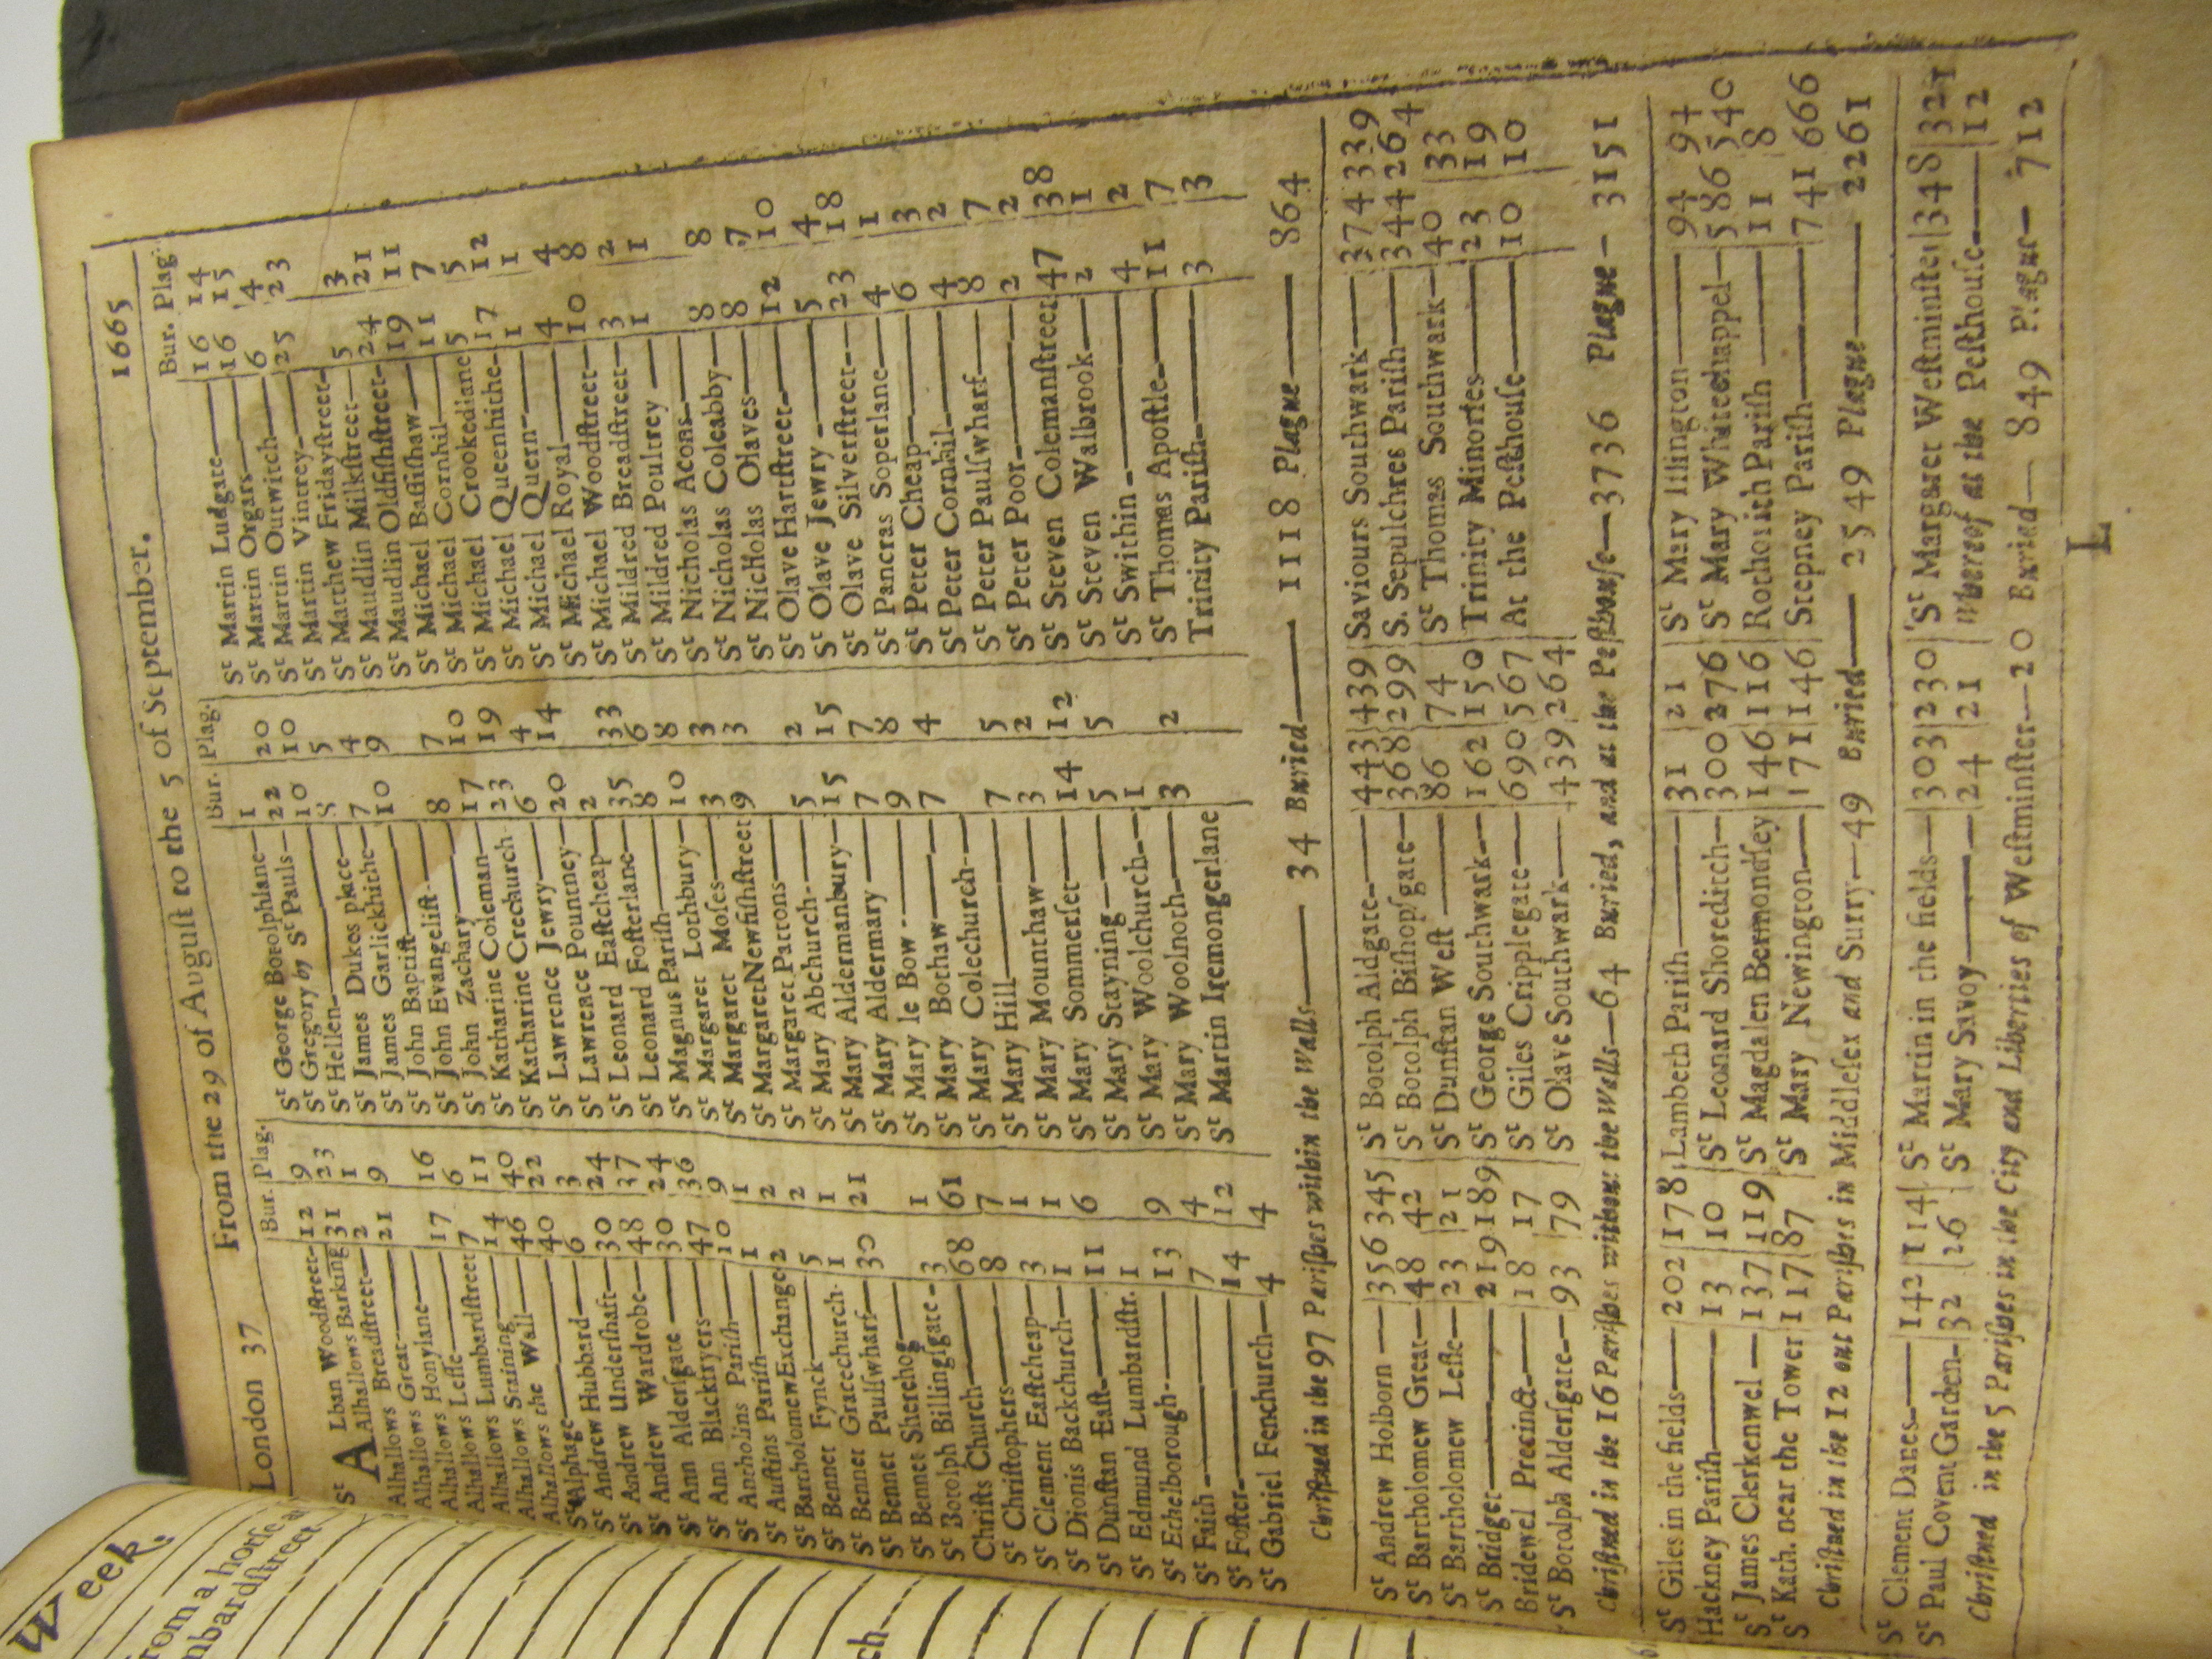 London 37 From the 29 of Auguſt to the 5 of September. 1665
Bur. Plag.
St ALban Woodſtreet 12 9
Alhallows Barking 31 23
Alhallows Breadſtreet 2 1
Alhallows Great 21 9
Alhallows Honylane
Alhallows Leſſe 17 16
Alhallows Lumbardſtreet 7 6
Alhallows Staining 14 11
Alhallows the Wall 46 40
St Alphage 40 22
St Andrew Hubbard 6 3
St Andrew Underſhaft 30 24
St Andrew Wardrobe 48 37
St Ann Alderſgate 30 24
St Ann Blackfryers 47 36
St Antholins Pariſh 10 9
St Auſtins Pariſh 1 1
St Bartholomew Exchange 2 2
St Bennet Fynck 5 2
St Bennet Gracechurch 1 1
St Bennet Paulſwharf 30 21
St Bennet Sherehog
St Botolph Billingſgate 3 1
Chriſts Church 68 61
St Chriſtophers 8 7
St Clement Eaſtcheap 3 1
St Dionis Backchurch 1 1
St Dunſtan Eaſt 11 6
St Edmund Lumbardſtr. 1
St Ethelborough 13 9
St Faith 7 4
St Foſter 14 12
St Gabriel Fenchurch 4 4
Bur. Plag.
St George Botolphlane 1
St Gregory by St Pauls 22 20
St Hellen 10 10
St James Dukes place 5 5
St James Garlickhithe 7 4
St John Baptiſt 10 9
St John Evangeliſt
St John Zachary 8 7
St Katharine Coleman 17 10
St Katharine Crechurch 23 19
St Lawrence Jewry 6 4
St Lawrence Pountney 20 14
St Leonard Eaſtcheap 2
St Leonard Foſterlane 35 33
St Magnus Pariſh 8 6
St Margaret Lothbury 10 8
St Margaret Moſes 3 3
St Margaret Newfiſhſtreet 9 3
St Margaret Pattons
St Mary Abchurch 5 2
St Mary Aldermanbury 15 15
St Mary Aldermary 7 7
St Mary le Bow 9 8
St Mary Bothaw 7 4
St Mary Colechurch
St Mary Hill 7 5
St Mary Mounthaw 3 2
St Mary Sommerſet 14 12
St Mary Stayning 5 5
St Mary Woolchurch 1
St Mary Woolnoth 3 2
St Martin Iremongerlane
Bur. Plag.
St Martin Ludgate 16 14
St Martin Orgars 16 15
St Martin Outwitch 6 4
St Martin Vintrey 25 23
St Matthew Fridayſtreet
St Maudlin Milkſtreet 5 3
St Maudlin Oldfiſhſtreet 24 21
St Michael Baſſiſhaw 19 11
St Michael Cornhil 11 7
St Michael Crookedlane 5 5
St Michael Queenhithe 17 12
St Michael Quern 1 1
St Michael Royal 4 4
St Michael Woodſtreet 10 8
St Mildred Breadſtreet 3 2
St Mildred Poultrey 1 1
St Nicholas Acons
St Nicholas Coleabby 8 8
St Nicholas Olaves 8 7
St Olave Hartſtreet 12 10
St Olave Jewry 5 4
St Olave Silverſtreet 23 18
St Pancras Soperlane 4 1
St Peter Cheap 6 3
St Peter Cornhil 4 2
St Peter Paulſwharf 8 7
St Peter Poor 2 2
St Steven Colemanſtreet 47 38
St Steven Walbrook 2 1
St Swithin 4 2
St Thomas Apoſtle 11 7
Trinity Pariſh 3 3
Chriſtned in the 97 Pariſhes within the Walls 34 Buried 1118 Plague 864
St Andrew Holborn 356 345
St Bartholomew Great 48 42
St Bartholomew Leſſe 23 21
St Bridget 219 189
Bridewel Precinct 18 17
St Botolph Alderſgate 93 79
St Botolph Aldgate 443 439
St Botolph Biſhopſgate 368 299
St Dunſtan Weſt 86 74
St George Southwark 162 150
St Giles Cripplegate 690 567
St Olave Southwark 439 264
Saviours Southwark 374 339
S. Sepulchres Pariſh 344 264
St Thomas Southwark 40 33
Trinity Minories 23 19
At the Peſthouſe 10 10
Chriſtned in the 16 Pariſhes without the Walls 64 Buried, and at the Peſthouſe 3736 Plague 3151
St Giles in the fields 202 178
Hackney Pariſh 13 10
St James Clerkenwel 137 119
St Kath. near the Tower 117 87
Lambeth Pariſh 31 21
St Leonard Shoreditch 300 276
St Magdalen Bermondſey 146 116
St Mary Newington 171 146
St Mary Iſlington 94 94
St Mary Whitechappel 586 540
Rothorith Pariſh 11 8
Stepney Pariſh 741 666
Chriſtned in the 12 out Pariſhes in Middleſex and Surry 49 Buried 2549 Plague 2261
St Clement Danes 142 114
St Paul Covent Garden 32 26
St Martin in the fields 303 230
St Mary Savoy 24 21
St Margaret Weſtminſter 348 321
Whereof at the Peſthouſe 12
Chriſtned in the 5 Pariſhes in the City and Liberties of Weſtminſter 20 Buried 849 Plague 712
L
Week.
from a horſe